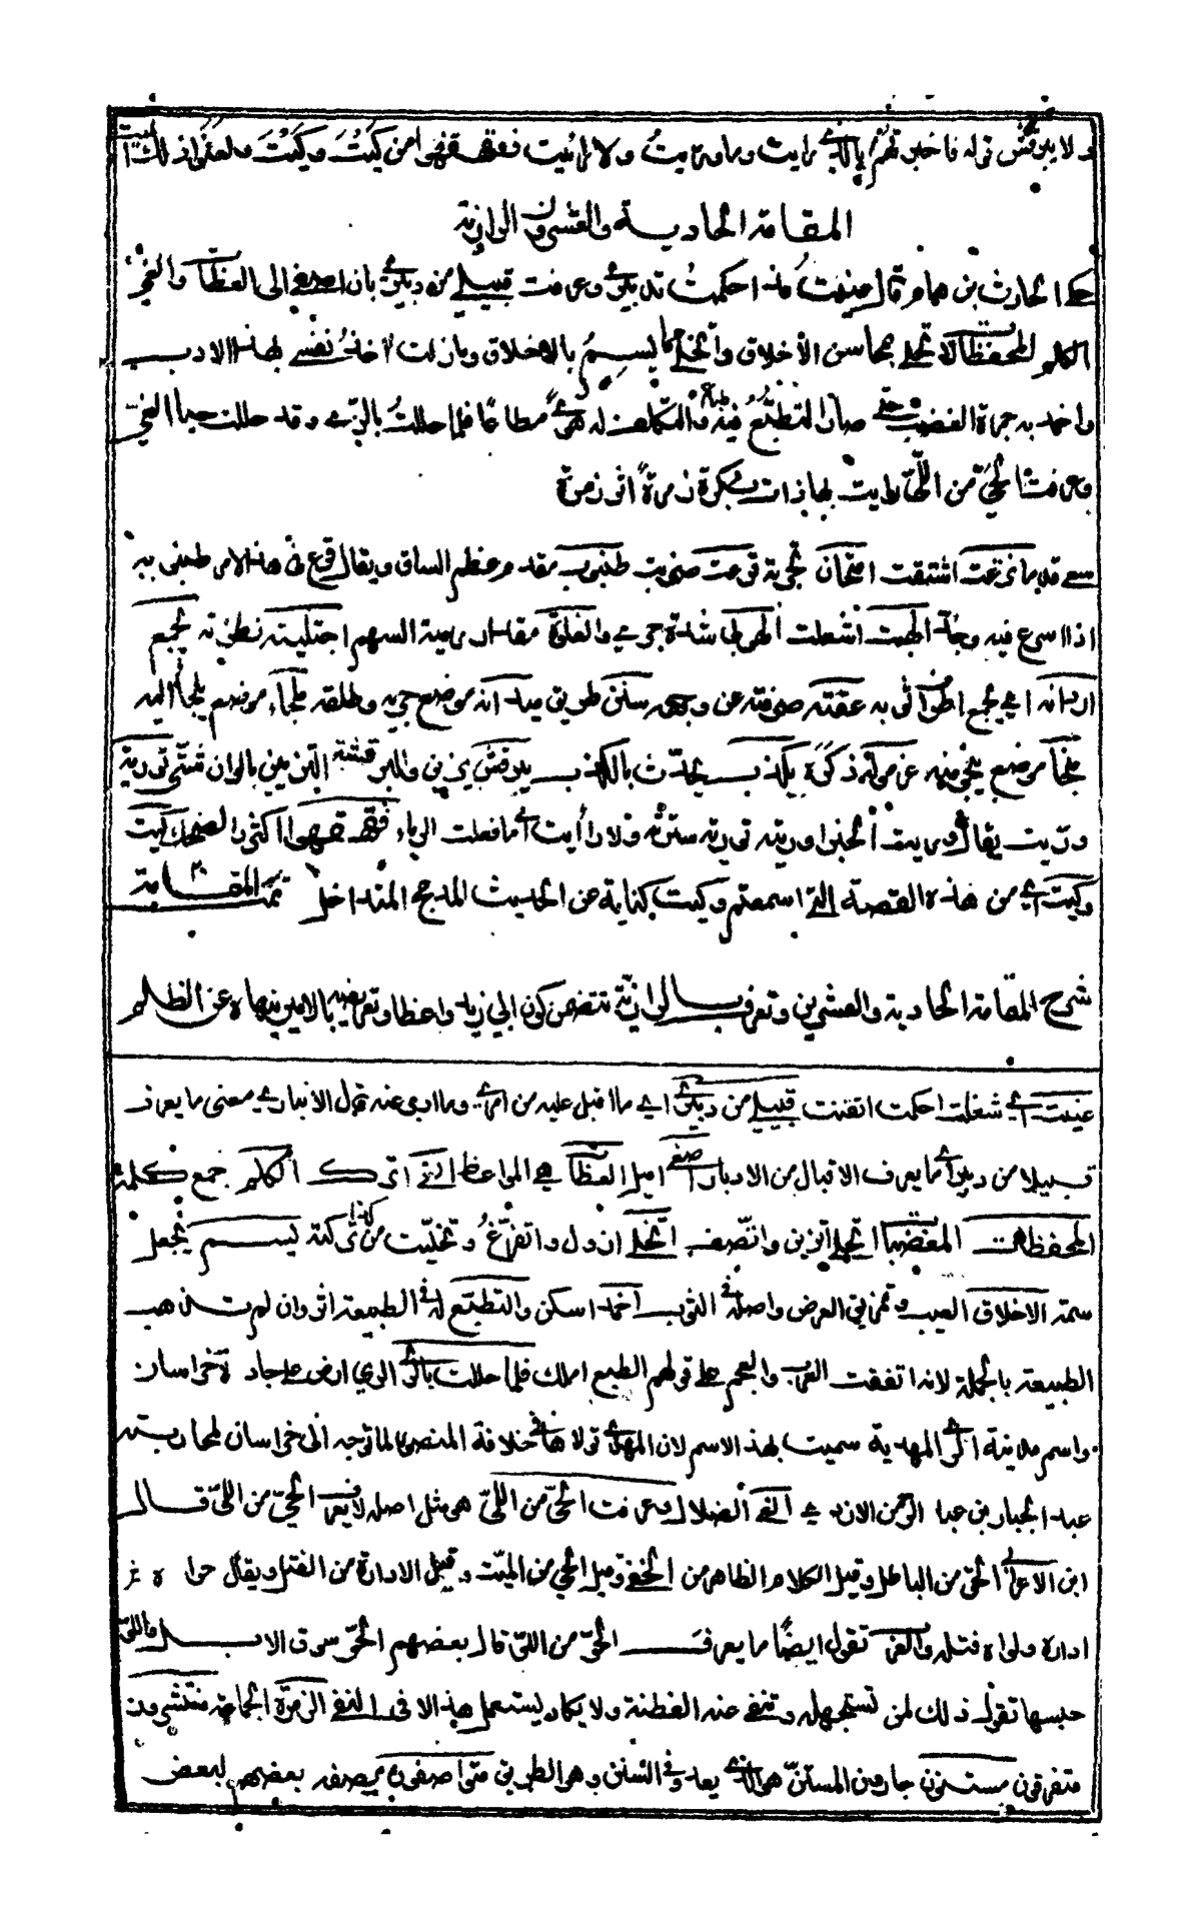 ولا يبرقش قوله فاخبرتهم بالذي رايت وما وريت ولا رائيت فقهقهوا من كيت وكيت ولعنوا ذلك الميت
المقامة الحادية والعشرون الرازية
حكى الحارث بن همام قال عنيت مذ احكمت تدبيري وعرفت قبيلي من دبيري بان اصغي الى العظات والغي
الكلم المحفظات لاتحلى بمحاسن الأخلاق واتخلى مما يسم بالاخلاق وما زلت اخذ نفسي بهذا الادب
واخمد به جمرة الغضب حتى صار التطبع فيه طباعا والتكلف له هوى مطاعا فلما حللت بالري وقد حللت حبا الغي
وعرفت الحي من اللي رايت بها ذات بكرة زمرة اثر زمرة
قدما نزعت اشتقت امتحان تجربة قرعت ضربت ظنبوب مقدم عظم الساق ويقال قرع في هذا الامر ظنبوبه
اذا اسرع فيه وجد الهبت اشعلت الهوب شدة جري والغلوة مقدار رمية السهم اجتليته نظرته تجمع
اردانه اي تجمع اطرافي به عقته صرفته عن وجهه سنن طريق ميدانه موضع جريه وطلقه ملجاء موضع يلجأ اليه
منجا موضع ينجى منه عزمه ذكره يكذب يحدث بالكذب يبرقش يزين والبرقشة التزيين بالوان شتى تورية
وريت يقال وريت الخبر اوريه تورية سترته ولا رأيت أي ما فعلت الرياء فقهقهوا اكثروا الضحك كيت
وكيت اي من هذه القصة التي اسمعتم وكيت كناية عن الحديث المدمج المتداخل تمت المقامة
شرح المقامة الحادية والعشرين وتعرف بالرازية تتضمن كون ابي زيد واعظا وتعريضه بالامير ينهاه عن الظلم
عنيت اي شغلت احكمت اتقنت قبيلي من دبيري اي ما اقبل عليه من امري وما ادبر عنه قول الانباري معنى ما يعرف
قبيلا من دبير أي ما يعرف الاقبال من الادبار اصغي اميل العظات هي المواعظ الغي اترك الكلم جمع كلمة
المحفظات المغضبات اتحلى اتزين واتصف اتخلى ازول واتفرغ وتخليت من كذا تركته يسم يجعل
سمة الاخلاق العيب وتمزيق العرض واصله في الثوب اخمد اسكن والتطبع له في الطبيعة اثر وان لم تذهب
الطبيعة بالجملة لانه اتفقت العرب والعجم على قولهم الطبع املك فلما حللت بالري الري ارض على جادة خراسان
واسم مدينة الري المهدية سميت بهذا الاسم لان المهدي نزلها في خلافة المنصور لما توجه الى خراسان لمحاربة
عبد الجبار بن عبد الرحمن الازدي الغي الضلال وعرفت الحي من اللي هو مثل اصله لا يعرف الحي من اللي قال
ابن الاعرابي الحق من الباطل وقيل الكلام الظاهر من الخفي وقيل الحي من الميت وقيل الادارة من الفتل ويقال حواه
اداره ولواه فتله والعرب تقول ايضا ما يعرف الحي من اللي قال بعضهم الحي سوق الابل واللي
حبسها تقول ذلك لمن تستجهله وتنفي عنه الفطنة ولا يكاد يستعمل هذا الا في النفي الزمرة الجماعة منتشرون
متفرقون مستنون جارون المستن هو الذي يعدو في السنن وهو الطريق متواصفون يصف بعضهم لبعض